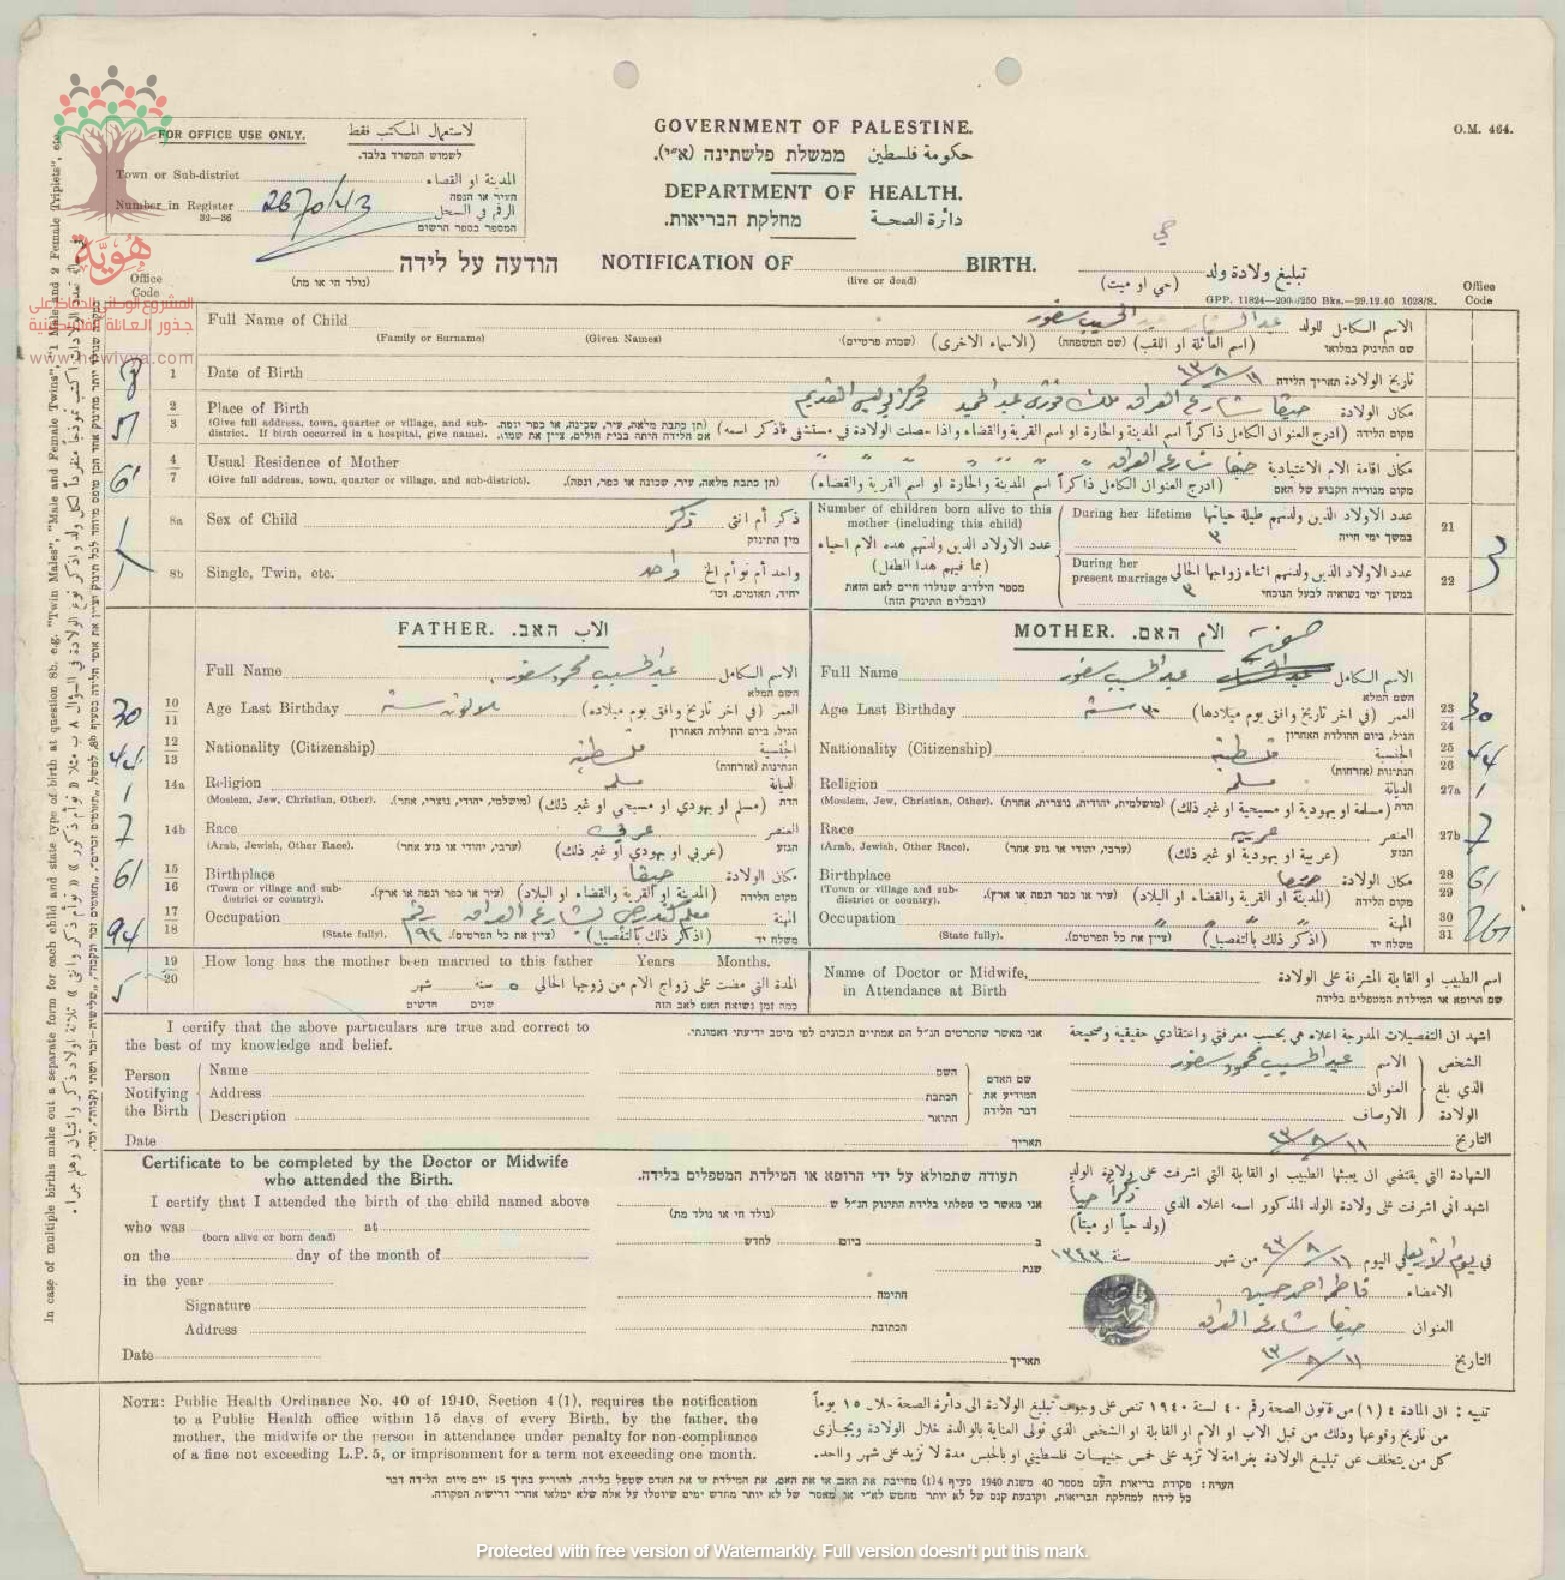 O.M. 464.
FOR OFFICE USE ONLY. لاستعمال المكتب فقط
לשמוש המשרד בלבד.
Town or Sub-district المدينة او القضاء
העיר או הנפה
Number in Register 2670/43 الرقم في السجل
32—36
המספר בספר הרשום
GOVERNMENT OF PALESTINE.
حكومة فلسطين ממשלת פלשתינה (א״י).
DEPARTMENT OF HEALTH.
دائرة الصحة מחלקת הבריאות.
הודעה על לידה NOTIFICATION OF BIRTH. تبليغ ولادة ولد حي
(נולד חי או מת) (live or dead) (حي او ميت)
GPP. 11824—200/250 Bks.—29.12.40 1628/8.
Office Code
Office Code
هُويّة
المشروع الوطني للحفاظ على
جذور العائلة الفلسطينية
www.howiyya.com
Full Name of Child عبد الستار عبد الحسيب الاسم الكامل للولد
(Family or Surname) (Given Names) (שמות פרטיים) (الاسماء الاخرى) (שם המשפחה) (اسم العائلة او اللقب) שם התינוק במלואו
1 Date of Birth ١١/٨/٤٣ تاريخ الولادة תאריך הלידה
2/3 Place of Birth حيفا شارع العراق ملك فوزي عبد الحميد القديم مكان الولادة
(Give full address, town, quarter or village, and sub-district. If birth occurred in a hospital, give name). (תן כתבת מלאה, עיר, שכונה, או כפר ונפה. אם הלידה היתה בבית חולים, ציין את שמו). (ادرج العنوان الكامل ذاكراً اسم المدينة والحارة او اسم القرية والقضاء واذا حصلت الولادة في مستشفى فاذكر اسمه) מקום הלידה
4/7 Usual Residence of Mother حيفا شارع العراق " " " " " " مكان اقامة الام الاعتيادية
(Give full address, town, quarter or village, and sub-district). (תן כתבת מלאה, עיר, שכונה או כפר ונפה). (ادرج العنوان الكامل ذاكراً اسم المدينة والحارة او اسم القرية والقضاء) מקום מגוריה הקבוע של האם
8a Sex of Child ذكر ذكر أم انثى
מין התינוק
8b Single, Twin, etc. واحد واحد أم توأم الخ
יחיד, תאומים, וכו׳
Number of children born alive to this mother (including this child)
عدد الاولاد الذين ولدتهم هذه الام احياء (بما فيهم هذا الطفل)
מספר הילדים שנולדו חיים לאם הזאת (ובכללם התינוק הזה)
During her lifetime عدد الاولاد الذين ولدتهم طيلة حياتها 21
٣ במשך ימי חייה
During her present marriage عدد الاولاد الذين ولدتهم اثناء زواجها الحالي 22 3
٣ במשך ימי נשואיה לבעל הנוכחי
FATHER. الاب האב.
Full Name عبد الحسيب محمود الاسم الكامل
השם המלא
30 10/11 Age Last Birthday ثلاثون سنة العمر (في اخر تاريخ وافق يوم ميلاده)
הגיל, ביום ההולדת האחרון
44 12/13 Nationality (Citizenship) فلسطينية الجنسية
הנתינות (אזרחות)
1 14a Religion مسلم الديانة
(Moslem, Jew, Christian, Other). (מושלמי, יהודי, נוצרי, אחר). (مسلم او يهودي او مسيحي او غير ذلك) הדת
7 14b Race عربي العنصر
(Arab, Jewish, Other Race). (ערבי, יהודי או גזע אחר) (عربي او يهودي او غير ذلك) הגזע
61 15/16 Birthplace حيفا مكان الولادة
(Town or village and sub-district or country). (עיר או כפר ונפה או ארץ). (المدينة او القرية والقضاء او البلاد) מקום הלידה
94 17/18 Occupation شارع العراق رقم ١٩٤ المهنة
(State fully). (ציין את כל הפרטים). (اذكر ذلك بالتفصيل) משלח יד
MOTHER. الام האם.
Full Name عبد الحسيب الاسم الكامل
השם המלא
Age Last Birthday ٣٠ سنة العمر (في اخر تاريخ وافق يوم ميلادها) 23/24 30
הגיל, ביום ההולדת האחרון
Nationality (Citizenship) فلسطينية الجنسية 25/26 44
הנתינות (אזרחות)
Religion مسلمة الديانة 27a 1
(Moslem, Jew, Christian, Other). (מושלמית, יהודית, נוצרית, אחרת) (مسلمة او يهودية او مسيحية او غير ذلك) הדת
Race عربية العنصر 27b 7
(Arab, Jewish, Other Race). (ערבי, יהודי או גזע אחר) (عربية او يهودية او غير ذلك) הגזע
Birthplace حيفا مكان الولادة 28/29 61
(Town or village and sub-district or country). (עיר או כפר ונפה או ארץ). (المدينة او القرية والقضاء او البلاد) מקום הלידה
Occupation " " " المهنة 30/31
(State fully). (ציין את כל הפרטים). (اذكر ذلك بالتفصيل) משלח יד
19/20 How long has the mother been married to this father Years Months.
المدة التي مضت على زواج الام من زوجها الحالي ٥ سنة شهر
כמה זמן נשואה האם לאב הזה שנים חדשים
Name of Doctor or Midwife, in Attendance at Birth
اسم الطبيب او القابلة المشرفة على الولادة
שם הרופא או המילדת המטפלים בלידה
I certify that the above particulars are true and correct to the best of my knowledge and belief.
אני מאשר שהפרטים הנ״ל הם אמתיים ונכונים לפי מיטב ידיעתי ואמונתי.
اشهد ان التفصيلات المدرجة اعلاه هي بحسب معرفتي واعتقادي حقيقية وصحيحة
Person Notifying the Birth
Name השם
Address הכתבת
Description התואר
שם האדם המודיע את דבר הלידה
الشخص الذي بلغ الولادة
الاسم عبد الحسيب محمود
العنوان
الاوصاف
Date תאריך التاريخ ١١/٨/٤٣
Certificate to be completed by the Doctor or Midwife who attended the Birth.
תעודה שתמולא על ידי הרופא או המילדת המטפלים בלידה.
الشهادة التي يقتضي ان يعبئها الطبيب او القابلة التي اشرفت على ولادة الولد
I certify that I attended the birth of the child named above
who was at
(born alive or born dead)
on the day of the month of
in the year
Signature
Address
Date
אני מאשר כי טפלתי בלידת התינוק הנ״ל ש
(נולד חי או נולד מת)
ב ביום לחדש
שנת
החתימה
הכתובת
תאריך
اشهد اني اشرفت على ولادة الولد المذكور اسمه اعلاه الذي ذكراً حياً
(ولد حياً او ميتاً)
في اليوم ١١/٨/٤٣ من شهر سنة
الامضاء فاطمة احمد
العنوان حيفا شارع العراق
التاريخ ١١/٨/٤٣
NOTE: Public Health Ordinance No. 40 of 1940, Section 4 (1), requires the notification
to a Public Health office within 15 days of every Birth, by the father, the
mother, the midwife or the person in attendance under penalty for non-compliance
of a fine not exceeding L.P. 5, or imprisonment for a term not exceeding one month.
تنبيه : ان المادة ٤ (١) من قانون الصحة رقم ٤٠ لسنة ١٩٤٠ تنص على وجوب تبليغ الولادة الى دائرة الصحة خلال ١٥ يوماً
من تاريخ وقوعها وذلك من قبل الاب او الام او القابلة او الشخص الذي تولى العناية بالوالدة خلال الولادة ويجازى
كل من يتخلف عن تبليغ الولادة بغرامة لا تزيد على خمس جنيهات فلسطيني او بالحبس مدة لا تزيد على شهر واحد.
Protected with free version of Watermarkly. Full version doesn't put this mark.